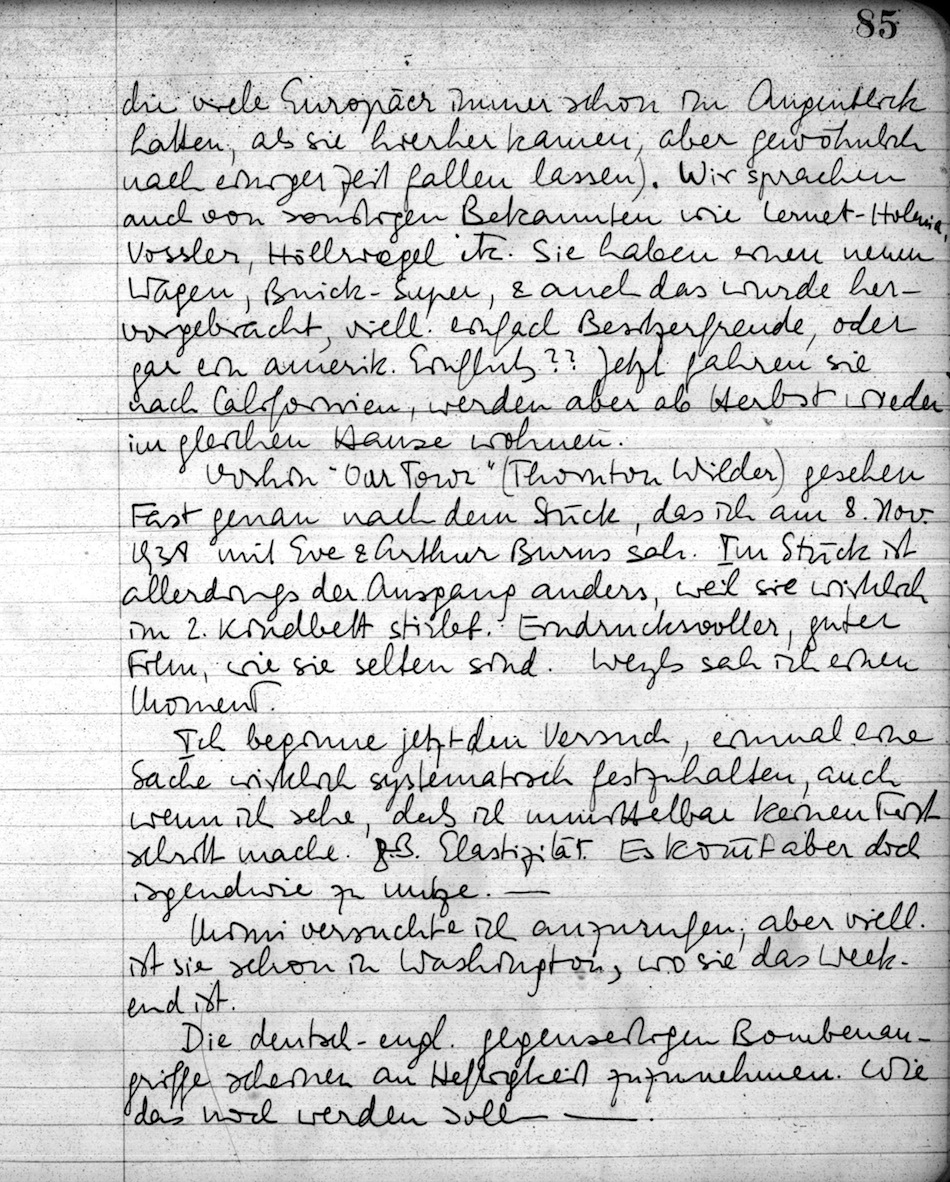 85
die viele Europäer immer schon im Augenblick
hatten, als sie hierher kamen, aber gewöhnlich
nach einiger Zeit fallen lassen). Wir sprachen
auch von sonstigen Bekannten wie Lernet-Holenia,
Vossler, Höllriegel etc. Sie haben einen neuen
Wagen, Buick-Super, & auch das wurde her-
vorgebracht, viell. einfach Besitzerfreude, oder
gar ein amerik. Einfluß?? Jetzt fahren sie
nach Californien, werden aber ab Herbst wieder
im gleichen Hause wohnen.
Vorhin "Our Town" (Thornton Wilder) gesehen
Fast genau nach dem Stück, das ich am 8. Nov.
1938 mit Eve & Arthur Burns sah. Im Stück ist
allerdings der Ausgang anders, weil sie wirklich
im 2. Kindbett stirbt. Eindrucksvoller, guter
Film, wie sie selten sind. Weyls sah ich einen
Moment.
Ich beginne jetzt den Versuch, einmal eine
Sache wirklich systematisch festzuhalten, auch
wenn ich sehe, daß ich unmittelbar keinen Fort
schritt mache. z.B. Elastizität. Es kom̅t aber doch
irgendwie zu nutze. —
Mimi versuchte ich anzurufen; aber viell.
ist sie schon in Washington, wo sie das Week-
end ist.
Die deutsch-engl. gegenseitigen Bombenan-
griffe scheinen an Heftigkeit zuzunehmen. Wie
das noch werden soll — —.